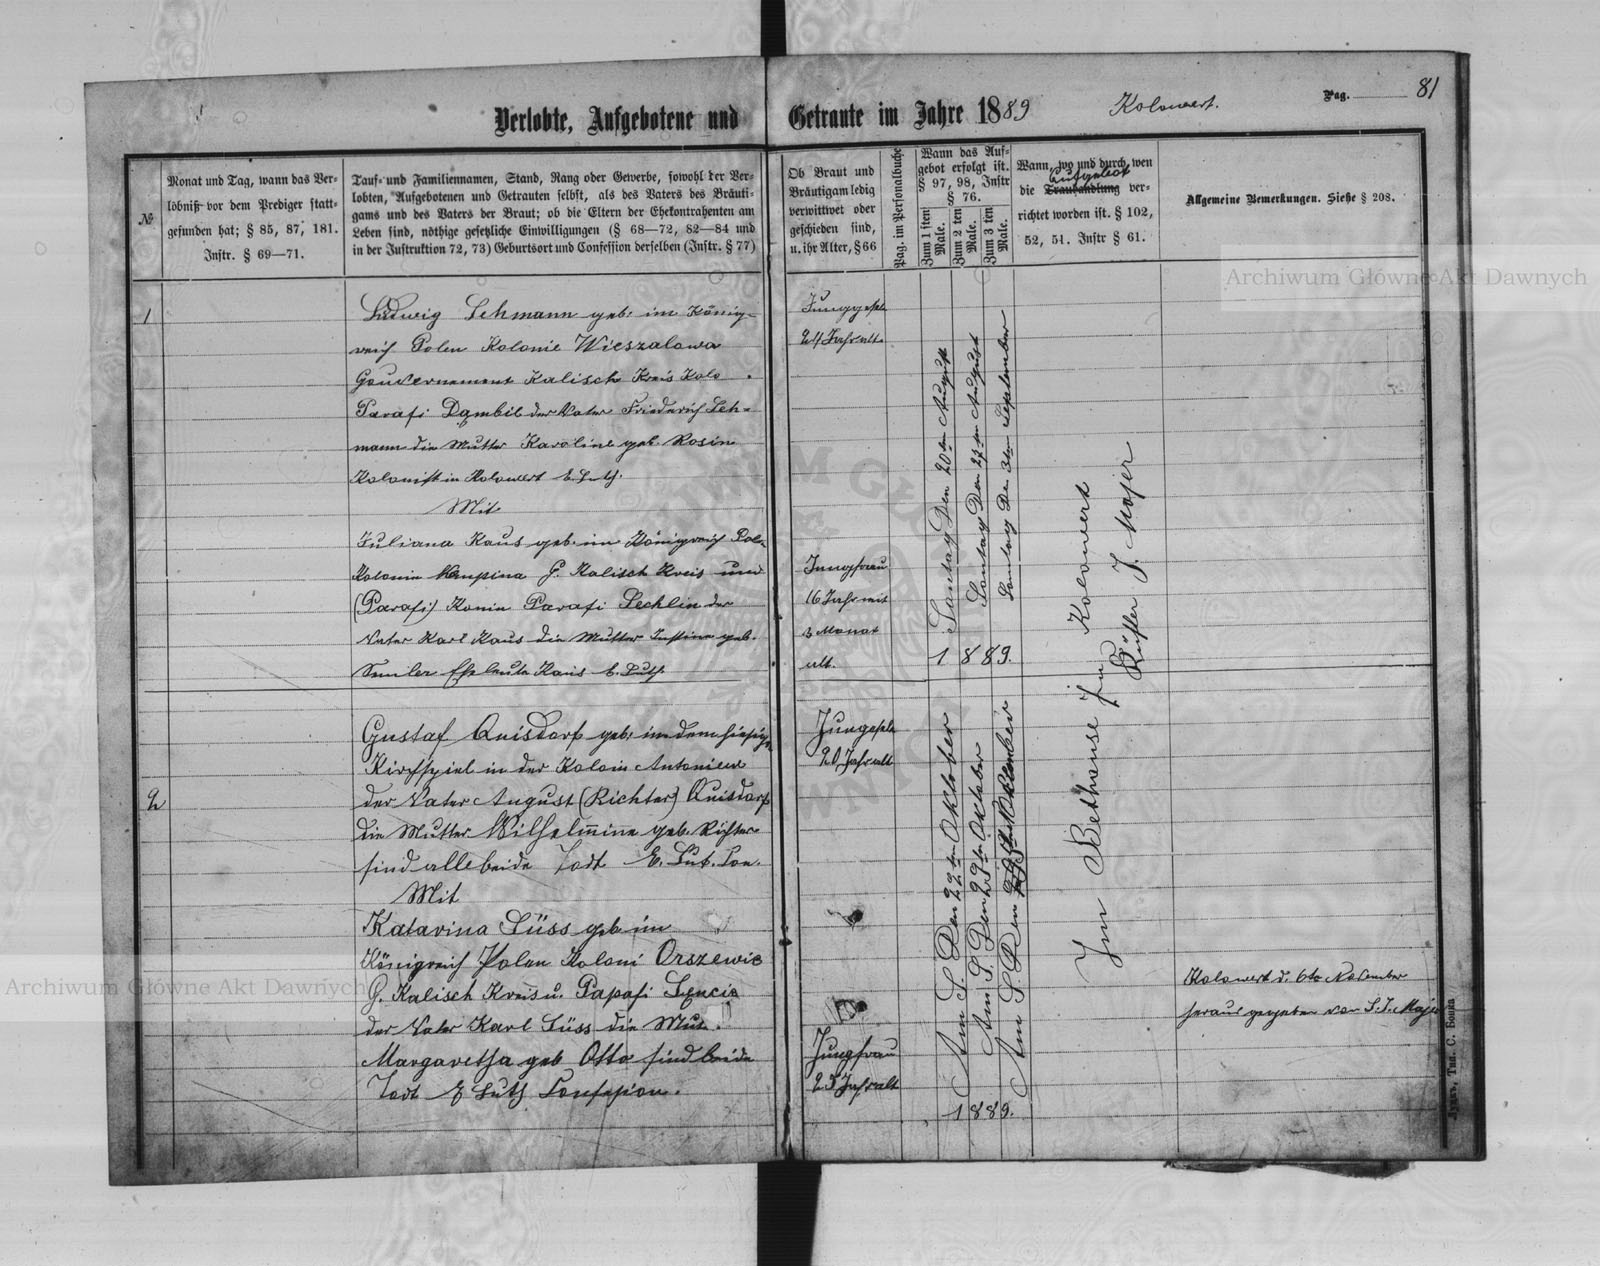 Verlobte, Aufgebotene und Getraute im Jahre 1889
Kolowert.
Pag. 81
№
Monat und Tag, wann das Ver-
löbniß vor dem Prediger statt-
gefunden hat; § 85, 87, 181.
Instr. § 69—71.
Tauf- und Familiennamen, Stand, Rang oder Gewerbe, sowohl der Ver-
lobten, Aufgebotenen und Getrauten selbst, als des Vaters des Bräuti-
gams und des Vaters der Braut; ob die Eltern der Ehekontrahenten am
Leben sind, nöthige gesetzliche Einwilligungen (§ 68—72, 82—84 und
in der Instruktion 72, 73) Geburtsort und Confession derselben (Instr. § 77)
Ob Braut und
Bräutigam ledig
verwittwet oder
geschieden sind,
u. ihr Alter, § 66
Pag. im Personalbuche
Wann das Auf-
gebot erfolgt ist.
§ 97, 98, Instr
§ 76.
Zum 1 sten Male.
Zum 2 ten Male.
Zum 3 ten Male.
Wann, wo und durch wen
Aufgebot
die Trauhandlung ver-
richtet worden ist. § 102,
52, 51. Instr § 61.
Allgemeine Bemerkungen. Siehe § 208.
1
Ludwig Lehmann geb. im König-
reich Polen Kolonie Wieszalowa
Gouvernement Kalisch Kreis Kolo
Parafi Dąmbił der Vater Friederich Leh-
mann die Mutter Karoline geb. Rosin
Kolonist in Kolowert E. Luth.
Mit
Juliana Kaus geb. im Königreich Polen
Kolonie G. Kalisch Kreis und
(Parafi) Konin Parafi Lechlin der
Vater Karl Kaus die Mutter Justine geb.
Semler Eheleute Kaus E. Luth.
Junggesel
24 Jahr alt.
Jungfrau
16 Jahr mit
3 Monat
alt.
Sontag Den 20ten August
Sontag Den 27ten August
Sontag De 3ten September
1889.
2
Gustaf Quisdorf geb. in dem hiesige
Kirchspiel in der Koloin Antoniew
der Vater August (Richter) Quisdorf
die Mutter Wilhelmine geb. Richter
sind alle beide Todt E. Lut. Con.
Mit
Katarina Süss geb im
Königreich Polen Koloni Orszewic
G. Kalisch Kreis u. Papafi Lęncic
der Vater Karl Süss die Mut.
Margaretha geb Otto sind beide
Todt E Luth Confession.
Jungesele
20 Jahr alt
Jungfrau
23 Jahr alt
Am S. Den 22ten Oktober
Am S. Den 29ten Oktober
Am S Den
1889.
Im Bethause zu Kolowert
Küster J. Majer
Kolowert d. 6te November
heraus gegeben von S. J. Majer
Лудзь, Тип. С. Бошка
Archiwum Główne Akt Dawnych
Archiwum Główne Akt Dawnych